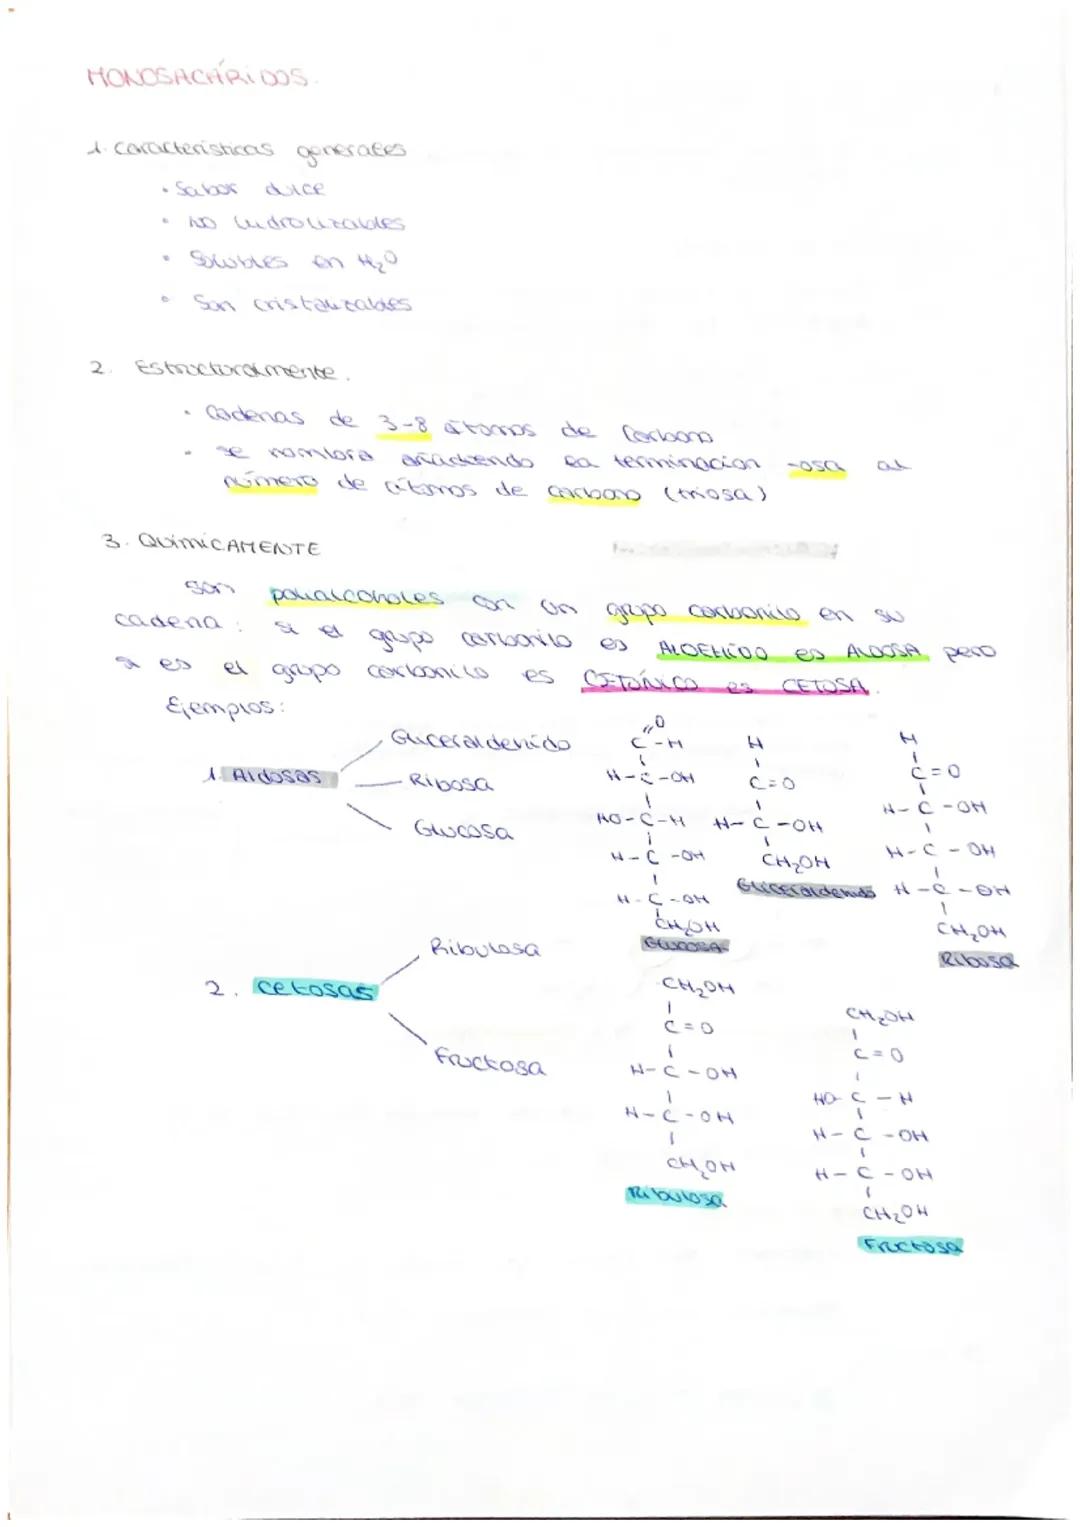 MONOSACÁRIDOS.
1. Características generales
• Sabor dulce
• NO hidrolizables
• Solubles en H₂O
• Son cristalizables
2. Estructuralmente.
• Cadenas de 3-8 átomos de Carbono
• se nombra añadiendo la terminacion -osa al
número de átomos de carbono (triosa)
3. QUÍMICAMENTE
son polialcoholes con un grupo carbonilo en su
cadena: si el grupo carbonilo es ALDEHIDO es ALDOSA pero
si es el grupo carbonilo es CETÓNICO es CETOSA.
Ejemplos:
1. Aldosas
Gliceraldehído
Ribosa
Glucosa
C=O
C-H
H-C-OH
HO-C-H
H-C-OH
H-C-OH
CH₂OH
Glucosa
H
C=O
H-C-OH
CH₂OH
Gliceraldehído
H
C=O
H-C-OH
H-C-OH
H-C-OH
CH₂OH
Ribosa
2. Cetosas
Ribulosa
Fructosa
CH₂OH
C=O
H-C-OH
H-C-OH
CH₂OH
Ribulosa
CH₂OH
C=O
HO-C-H
H-C-OH
H-C-OH
CH₂OH
Fructosa